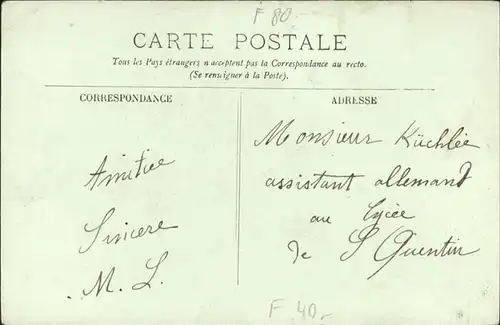 F 80.
CARTE POSTALE
Tous les Pays étrangers n'acceptent pas la Correspondance au recto.
(Se renseigner à la Poste).
CORRESPONDANCE
Amitiée
Sincere
M. L.
ADRESSE
Monsieur Küchlée
assistant allemand
au lycée
de St Quentin
F 40.-